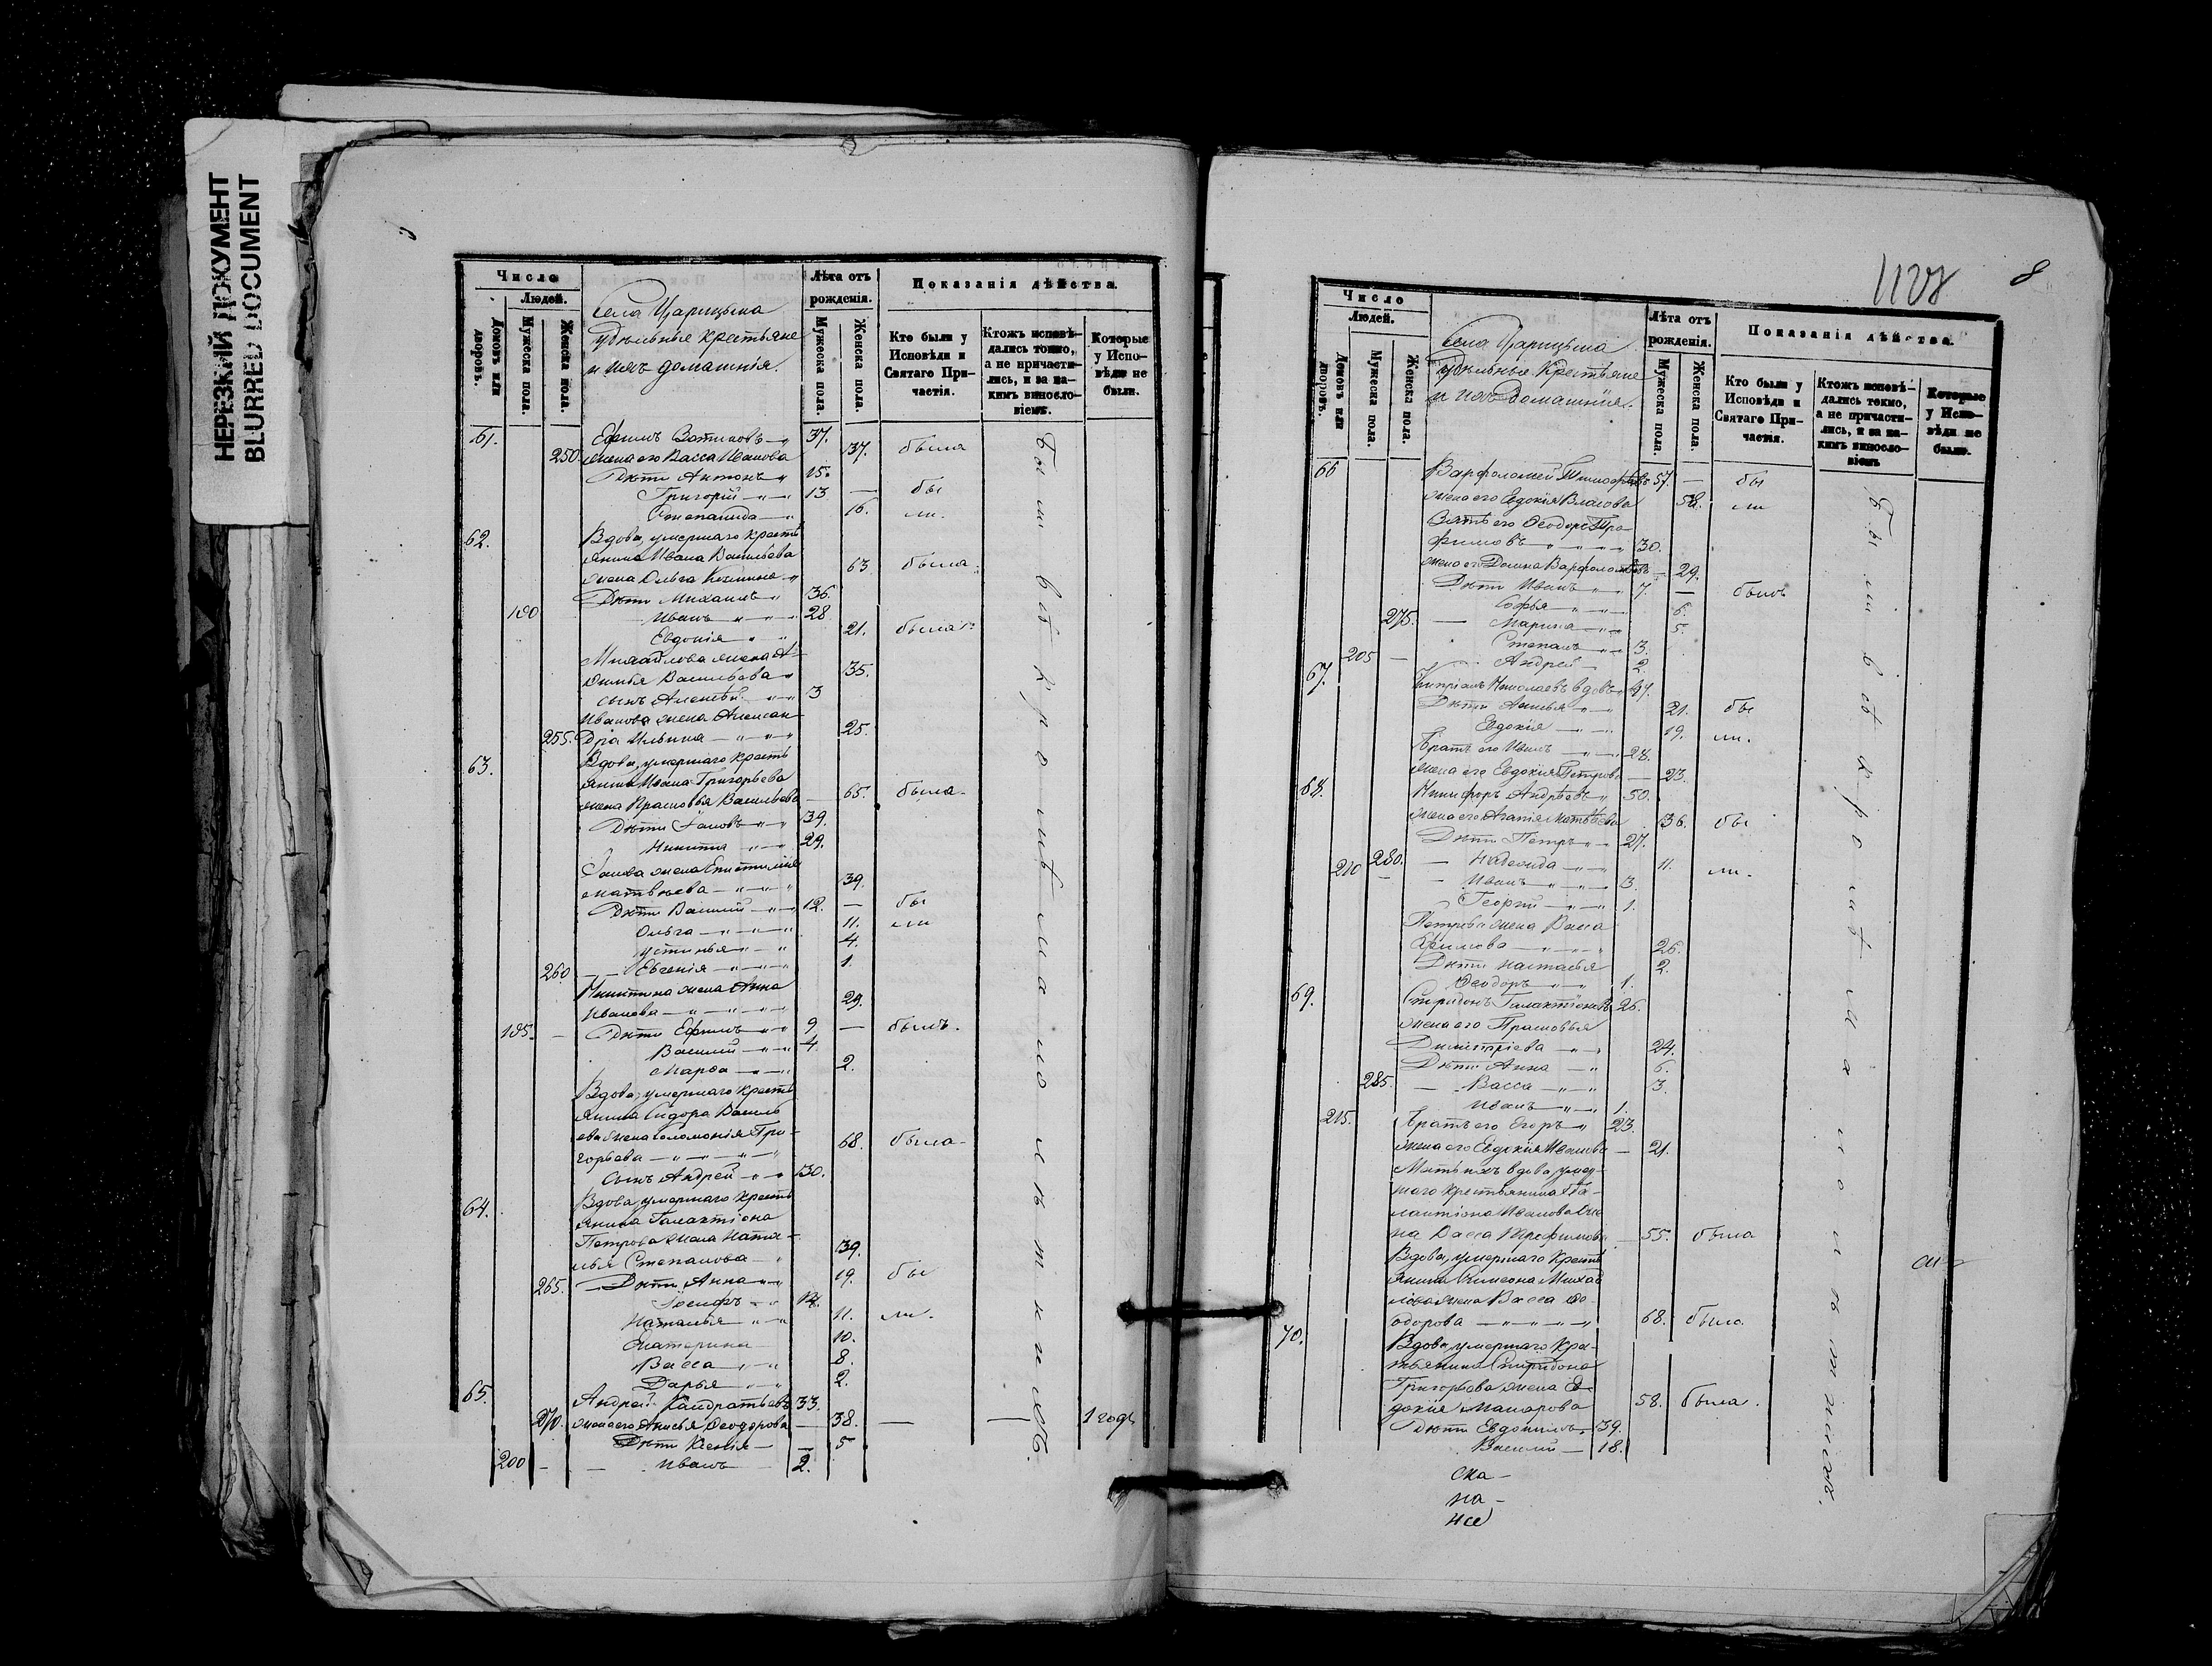 НЕРЕЗКИЙ ДОКУМЕНТ
BLURRED DOCUMENT
Число
Людей.
Домовъ или дворовъ.
Мужеска пола.
Женска пола.
Села Царицына
удѣльные крестьяне
и ихъ домашнія.
Лѣта отъ рожденія.
Мужеска пола.
Женска пола.
Показанія дѣйства.
Кто были у Исповѣди и Святаго Причастія.
Ктожъ исповѣдались токмо, а не причастились, и за какимъ винословіемъ.
Которые у Исповѣди не были.
61. Ефимъ 37.
250. жена его Васса Иванова 37. была
Дѣти Антонъ 15.
Григорій 13 — бы
Степанида 16. ли.
62. Вдова, умершаго кресть
янина Ивана Васильева
жена Ольга 63 была.
Дѣти Михаилъ 36.
190 Иванъ 28
Евдокія 21. была
Михайлова жена А
Васильева 35.
сынъ Алексѣй 3
Иванова жена Алексан
255. дра Ильина 25.
63. Вдова, умершаго кресть
янина Ивана Григорьева
жена Прасковья Васильева — 65. была.
Дѣти Іаковъ 39.
Никита 29.
Іакова жена Епистимія
Матвѣева 39.
Дѣти Василій 12. — бы
Ольга 11. ли
Устинья 4.
260 Евгенія 1.
Никитина жена Анна
Иванова 29.
195. — Дѣти Ефимъ 9 — былъ.
Василій 4
Марѳа 2.
Вдова, умершаго кресть
янина Сидора Василь
ева жена Соломонія Гри-
горьева 68. была.
Сынъ Андрей 30.
64. Вдова, умершаго кресть
янина Галактіона
Петрова жена Ната-
лья Степанова 39.
265. Дѣти Анна 19. бы
Іосифъ
Наталья 11. ли.
Екатерина 10.
Васса 8.
Дарья 2.
65. Андрей Кондратьевъ 33.
270. жена его Анисья Ѳеодорова — 38. — — 1 годъ
Дѣти Ксенія 5
200 — — Иванъ 2.
Были всѣ кромѣ малолѣтнихъ.
1128
8
Число
Людей.
Домовъ или дворовъ.
Мужеска пола.
Женска пола.
Села Царицына
удѣльные крестьяне
и ихъ домашнія.
Лѣта отъ рожденія.
Мужеска пола.
Женска пола.
Показанія дѣйства.
Кто были у Исповѣди и Святаго Причастія.
Ктожъ исповѣдались токмо, а не причастились, и за какимъ винословіемъ
Которые у Исповѣди не были.
66 Варфоломей Тимофеевъ 57. — бы
жена его Евдокія Власова 58. ли
Зять его Ѳеодоръ Тро-
фимовъ 30.
жена его Домна Варфоломеева 29.
Дѣти Иванъ 7. — былъ
Софья 6.
275. — Марина 5.
Степанъ 3.
205 — Андрей 2
67. Кипріанъ Николаевъ вдовъ
Дѣти Анисья 21. бы
Евдокія 19. ли.
Братъ его Иванъ 28.
жена его Евдокія Петрова — 23.
68. Никифоръ Андреевъ 50.
жена его Агаѳія Матвѣева 36. бы
Дѣти Петръ 27.
280. — Надежда 11. ли.
210 — — Иванъ 3.
Георгій 1.
Петрова жена Васса
Ефимова 26.
Дѣти Настасья 2.
Ѳеодоръ 1.
69. Спиридонъ Галактіоновъ 26.
жена его Прасковья
Димитріева 24.
Дѣти Анна 6.
285. — Васса 3.
Иванъ 1.
215. Братъ его Егоръ 23.
жена его Евдокія Иванова — 21.
Мать ихъ вдова, умер-
шаго крестьянина Га-
лактіона Иванова же
на Васса Трофимова 55. была
Вдова, умершаго кресть
янина Симеона Михай
лова жена Васса Ѳе-
одорова 68. была
70. Вдова, умершаго кре-
стьянина Спиридона
Григорьева жена Ев-
докія Макарова 58. была.
Дѣти Евдокимъ 39.
Василій — 18.
Были всѣ кромѣ малолѣтнихъ.
ска-
на-